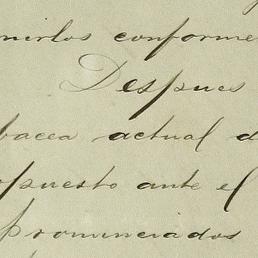 nirlos conforme
Despues
bacea actual d
opuesto ante el
pronunciados